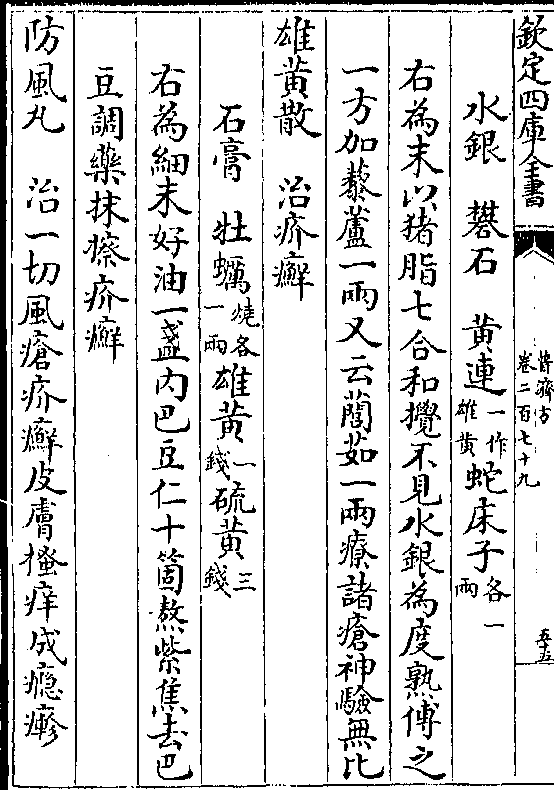 欽定四庫全書
普濟方
卷二百七十九
五十五
水銀 礬石 黄連一作雄黄蛇床子各一兩
右為末以猪脂七合和攪不見水銀為度熟傅之
一方加藜蘆一兩又云藺茹一兩療諸瘡神驗無比
雄黄散 治疥癬
石膏 牡蠣燒各一兩雄黄一錢硫黄三錢
右為細末好油一盞内巴豆仁十箇熬紫焦去巴
豆調藥抹擦疥癬
防風丸 治一切風瘡疥癬皮膚搔痒成癮瘮